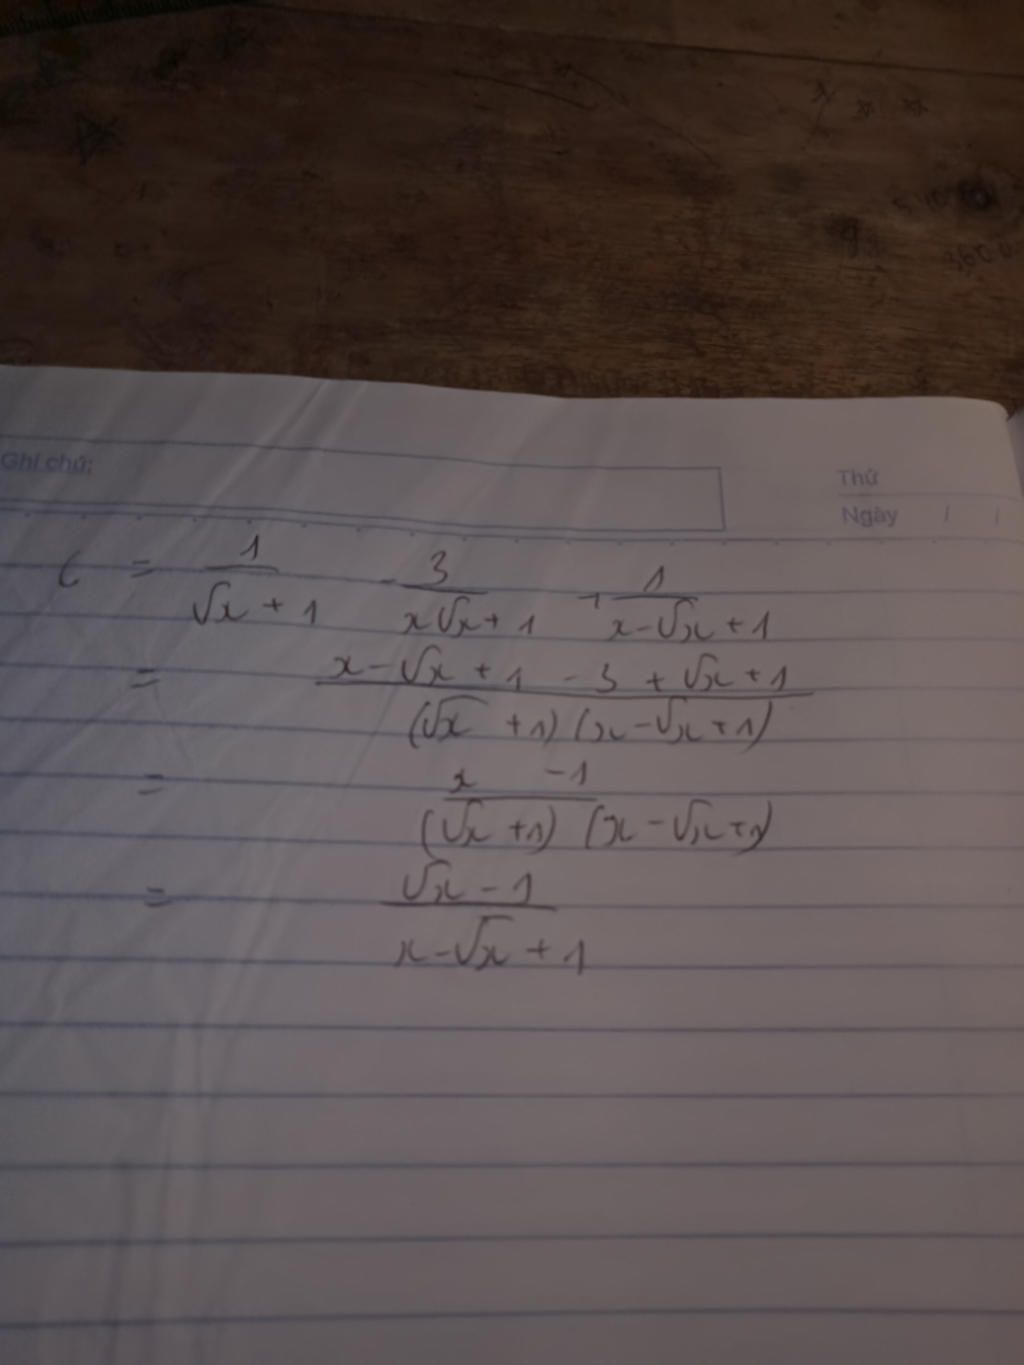 Ghi chú:
Thứ
Ngày / /
C = 1/(√x + 1) - 3/(x√x + 1) + 1/(x - √x + 1)
= (x - √x + 1 - 3 + √x + 1)/((√x + 1)(x - √x + 1))
= (x - 1)/((√x + 1)(x - √x + 1))
= (√x - 1)/(x - √x + 1)